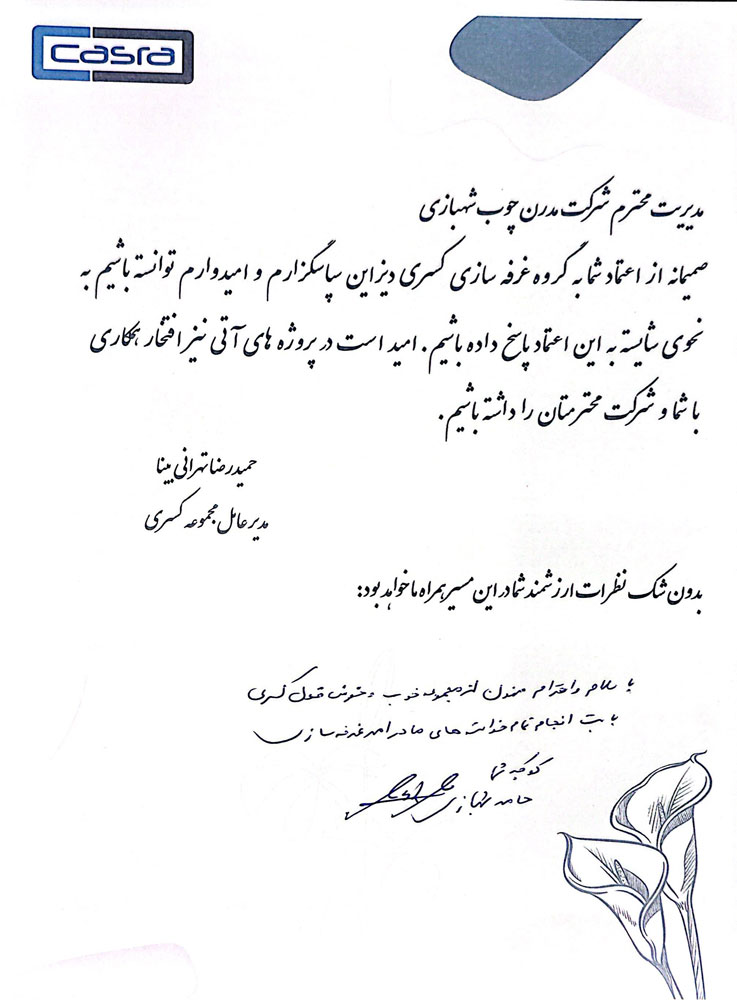 casra
مدیریت محترم شرکت مدرن چوب شهبازی
صمیمانه از اعتماد شما به گروه غرفه سازی کسری دیزاین سپاسگزارم و امیدوارم توانسته باشیم به
نحوی شایسته به این اعتماد پاسخ داده باشیم. امید است در پروژه های آتی نیز افتخار همکاری
با شما و شرکت محترمتان را داشته باشیم.
حمیدرضا تهرانی بینا
مدیر عامل مجموعه کسری
بدون شک نظرات ارزشمند شما در این مسیر همراه ما خواهد بود:
با سلام و احترام ممنون از مجموعه خوب و خوش قول کسری
بابت انجام تمام خدمات های ما در امر غرفه سازی
کوچک شما
حامد شهبازی